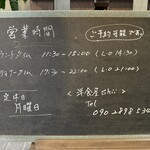 営業時間
ご予約可能です。
ランチタイム 11:30-15:00 (L.O 14:30)
ディナータイム 17:30-22:00 (L.O 21:00)
定休日
月曜日
<洋食屋
Tel
090 2898 534